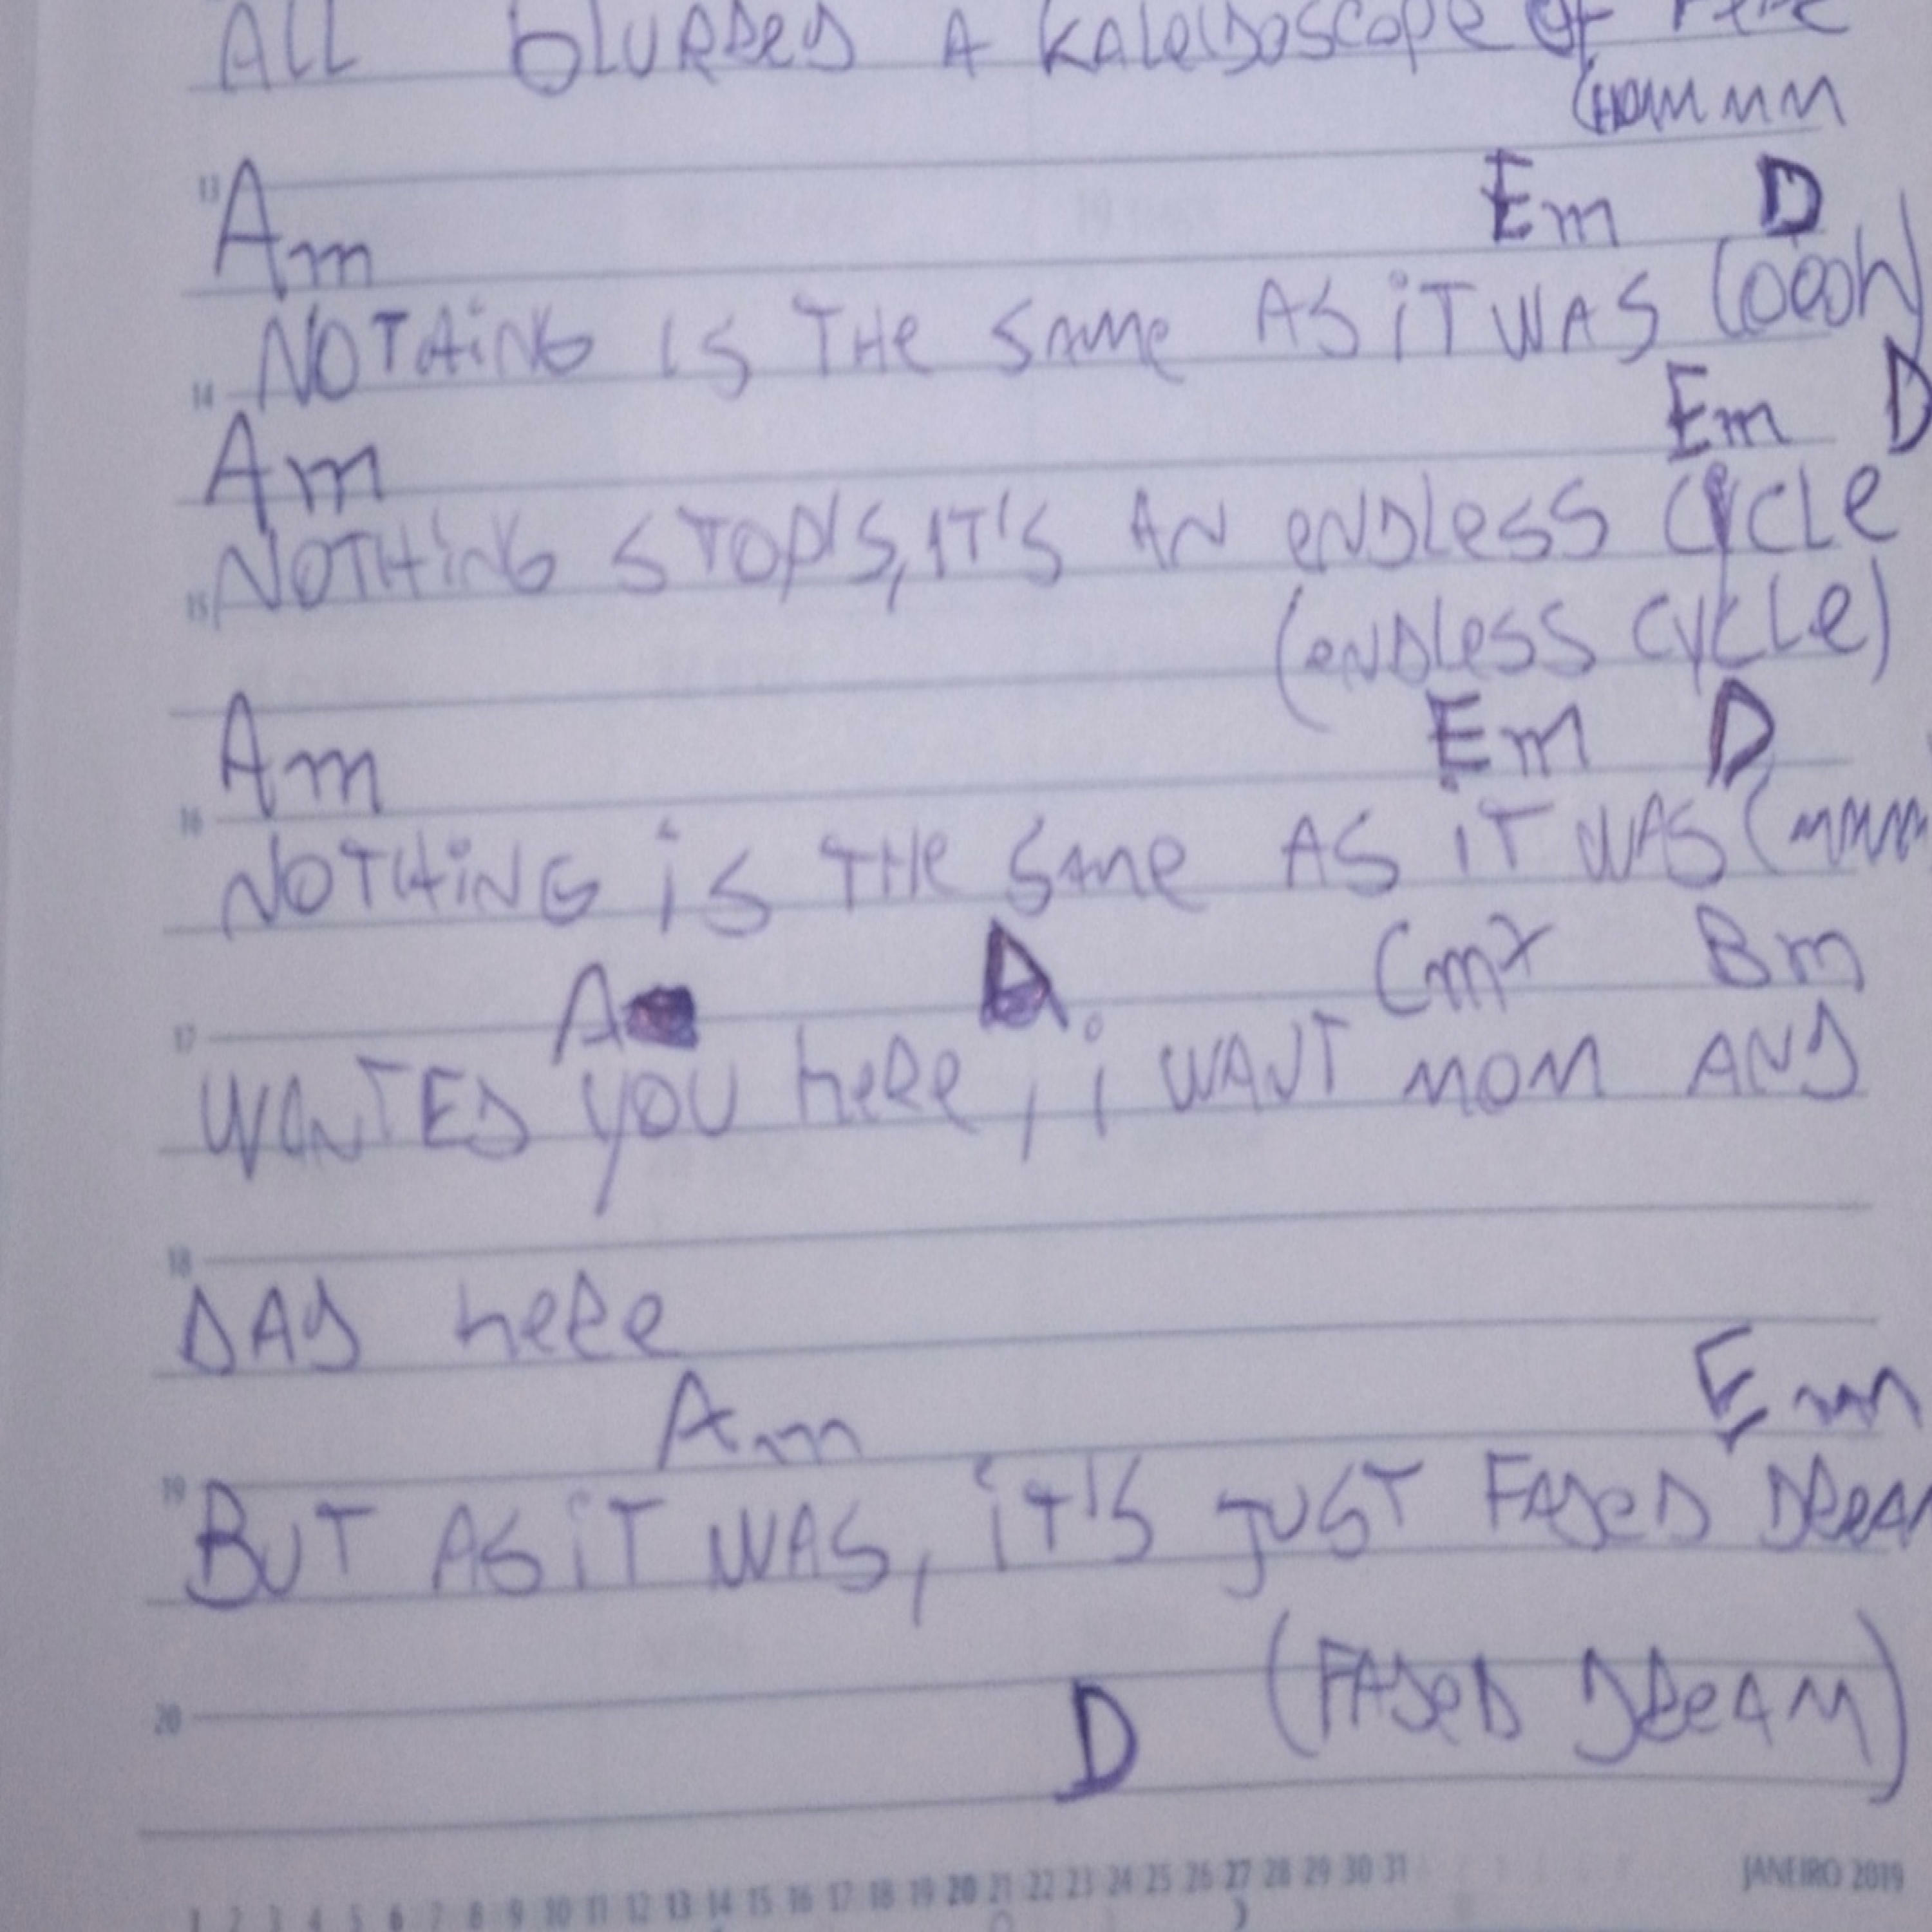 ALL blurred A kaleidoscope of
(HOMMMM
13 Am Em D
NOTHING IS THE SAME AS IT WAS (OOOH)
14
Am Em D
NOTHING STOP'S, IT'S AN eNDLess CYCLe
15
(eNDLess CYCLe)
Am Em D
16
NOTHING iS THe SAMe AS iT WAS (MMMM
A D Cm7 Bm
17
WANTED YOU heRe, i WANT MOM AND
18
DAD heRe
Am Em
19
BUT AS iT WAS, iT'S JUST FADeD DReAM
20 (FADeD DReAM)
D
1 2 3 4 5 6 7 8 9 10 11 12 13 14 15 16 17 18 19 20 21 22 23 24 25 26 27 28 29 30 31 JANEIRO 2019